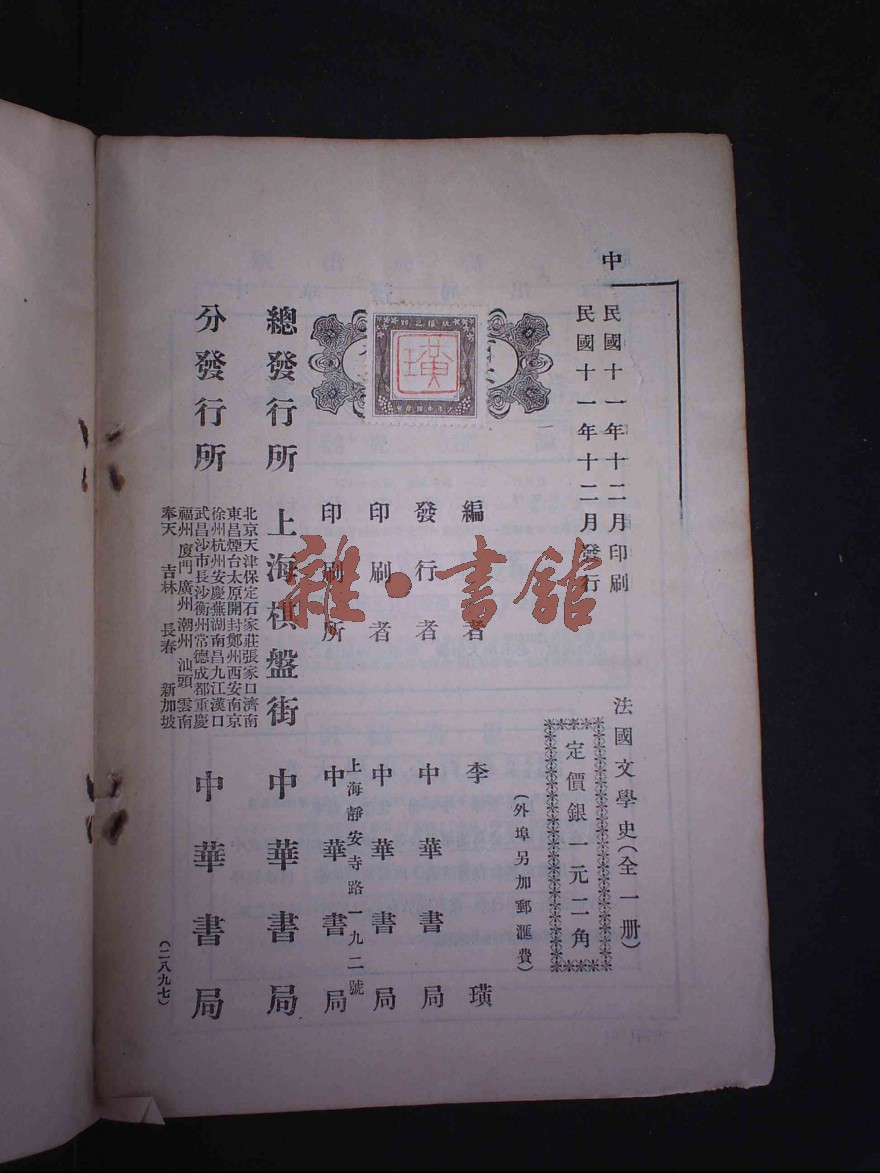 中
民國十一年十二月印刷
民國十一年十二月發行
法國文學史(全一册)
定價銀一元二角
(外埠另加郵滙費)
編者 李璜
發行者 中華書局
印刷者 中華書局
上海靜安寺路一九二號
印刷所 中華書局
總發行所 上海棋盤街 中華書局
分發行所 中華書局
北京天津保定石家莊張家口濟南
東昌煙台太原開封鄭州西安南京
徐州杭州安慶蕪湖南昌九江漢口
武昌沙市長沙衡州常德成都重慶
福州廈門廣州潮州汕頭雲南
奉天 吉林 長春 新加坡
(二八九七)
璜
雜·書館